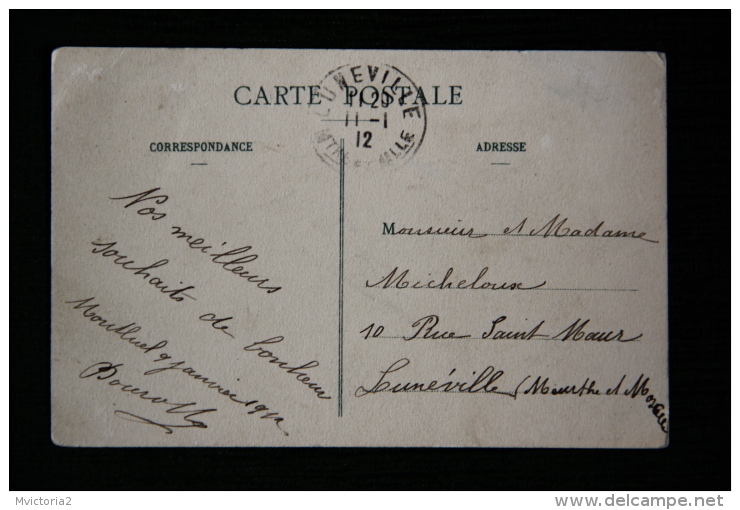 CARTE POSTALE
LUNEVILLE
11 20
11 - 1
12
CORRESPONDANCE
ADRESSE
Nos meilleurs
souhaits de bonheur
Montluel 9 janvier 1912
Monsieur et Madame
Micheloux
10 Rue Saint Maur
Lunéville (Meurthe et Moselle
Mvictoria2
http://www.delcampe.net